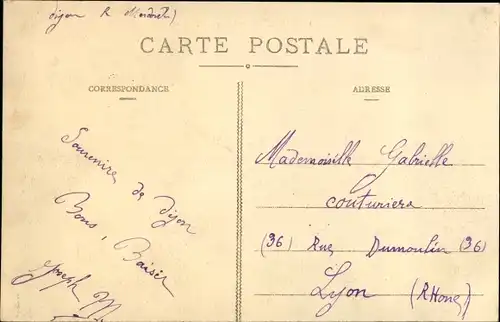 dijon R
CARTE POSTALE
CORRESPONDANCE
Souvenire de dijon
Bons, Baiser
Joseph M
ADRESSE
Mademoiselle Gabrielle
couturiera
(36) Rue Dumoulin (36)
Lyon (RHone)